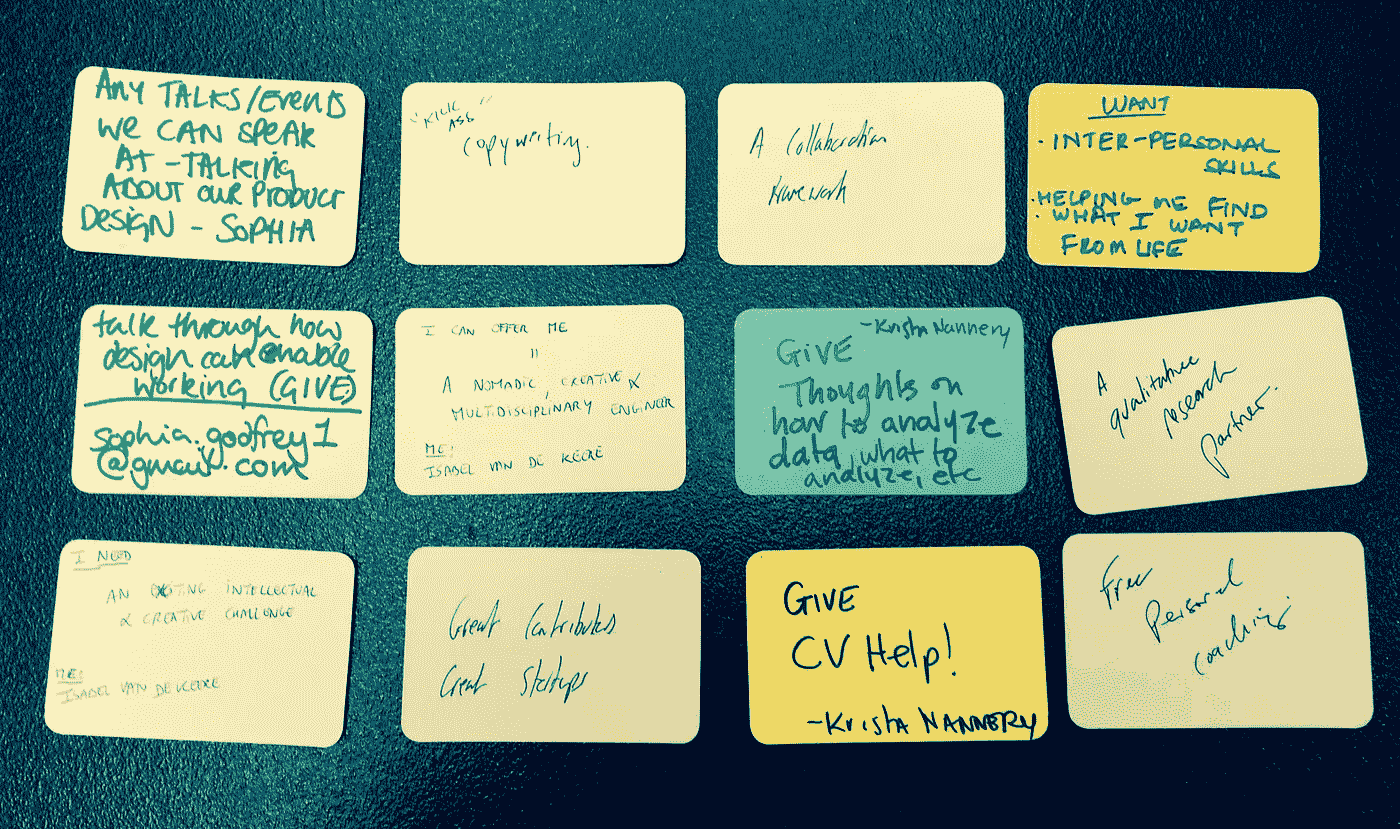 ANY TALKS/EVENTS
WE CAN SPEAK
AT - TALKING
ABOUT OUR PRODUCT
DESIGN - SOPHIA
"KICK
ASS"
copywriting.
A Collaboration
framework
WANT
· INTER-PERSONAL
SKILLS
· HELPING ME FIND
· WHAT I WANT
FROM LIFE
talk through how
design can enable
working (GIVE)
sophia.godfrey1
@gmail.com
I CAN OFFER ME
=
A NOMADIC, CREATIVE &
MULTIDISCIPLINARY ENGINEER
ME:
ISABEL VAN DE KEERE
- Krista Nannery
GIVE
Thoughts on
how to analyze
data, what to
analyze, etc
A
qualitative
research
partner.
I NEED
AN EXITING INTELLECTUAL
& CREATIVE CHALLENGE
ME:
ISABEL VAN DE KEERE
Great Contributors
Great Startups
GIVE
CV Help!
- Krista NANNERY
Free
Personal
coaching